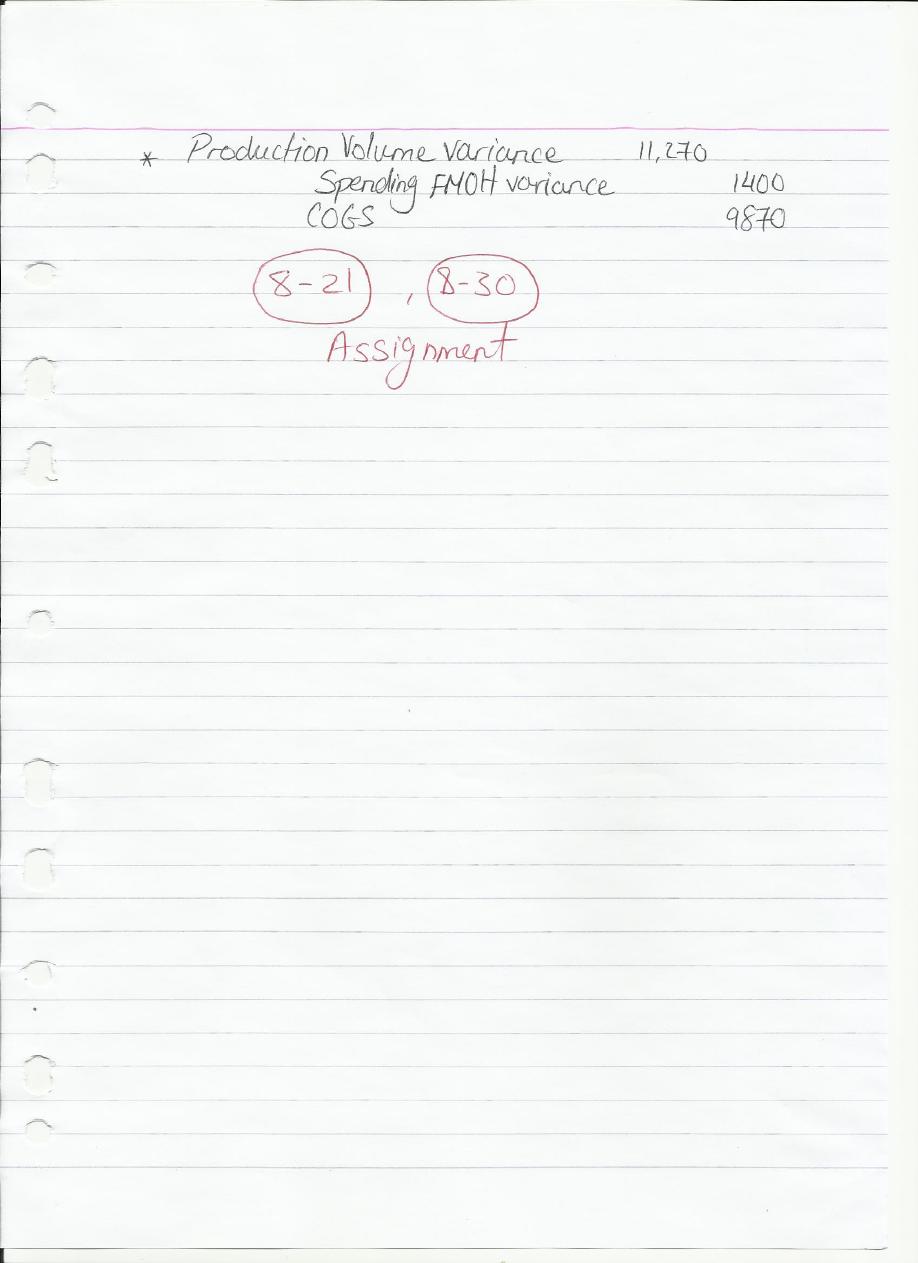 * Production Volume Variance 11,270
Spending FMOH variance 1400
COGS 9870
8-21 , 8-30
Assignment